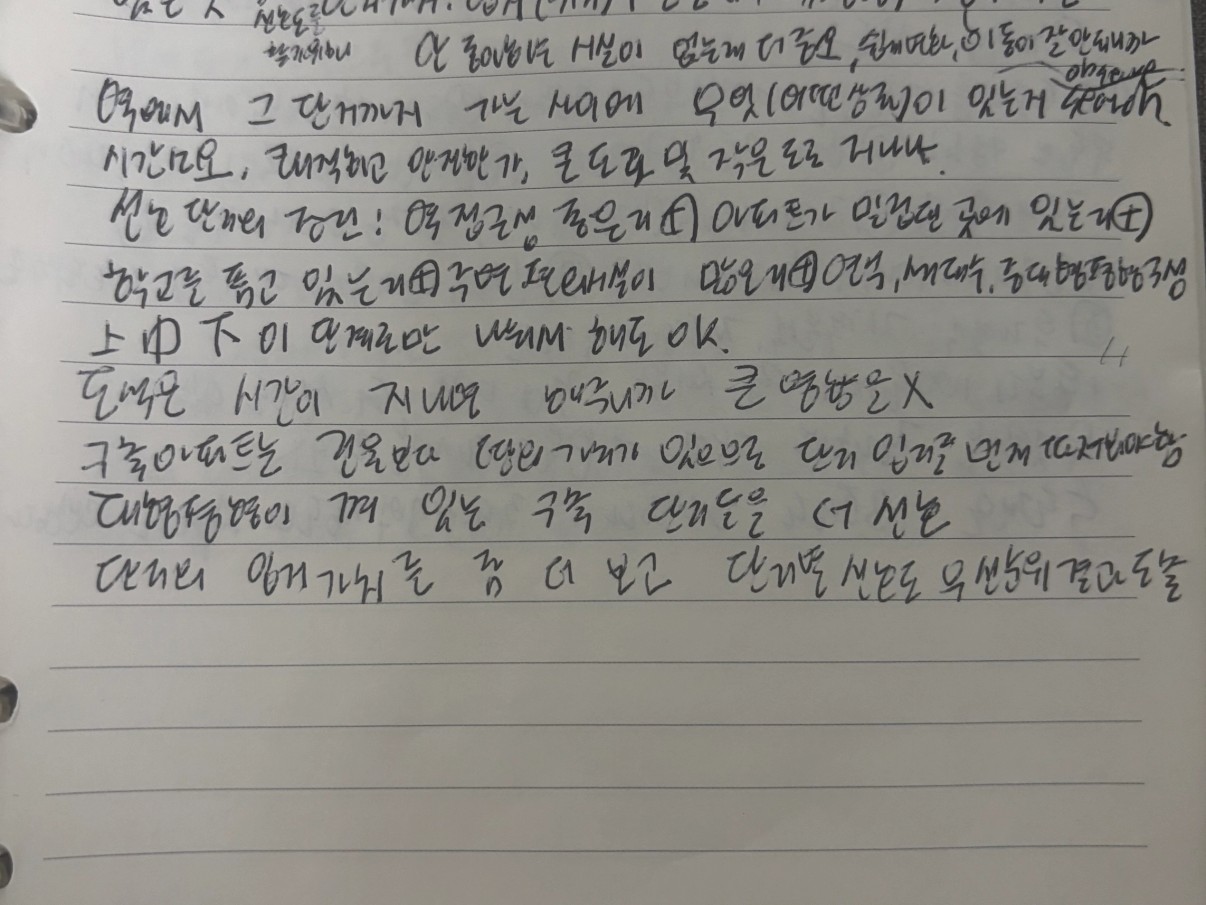 선호도를
안 좋아하는 시설이 없는게 더 중요, 쉽게 변화, 이동이 잘 안되니까
observe
역에서 그 단지까지 가는 사이에 무엇(어떤 상권)이 있는지 search
시간 소요, 쾌적하고 안전한가, 큰 도로 및 작은 도로 지나나.
선호 단지의 조건! 역 접근성 좋은지⊕ 아파트가 밀집된 곳에 있는지⊕
학교를 품고 있는지⊕ 주변 편의시설이 많은지⊕ 연식, 세대수, 중대형평형 구성
上 中 下 이 단계로만 나눠서 해도 OK.
도색은 시간이 지나면 바꾸니까 큰 영향은 X
구축아파트는 건물보다 땅의 가치가 있으므로 단지 입지를 먼저 따져봐야함
대형평형이 껴 있는 구축 단지들을 더 선호
단지의 입지가치를 좀 더 보고 단지별 선호도 우선순위 결과 도출